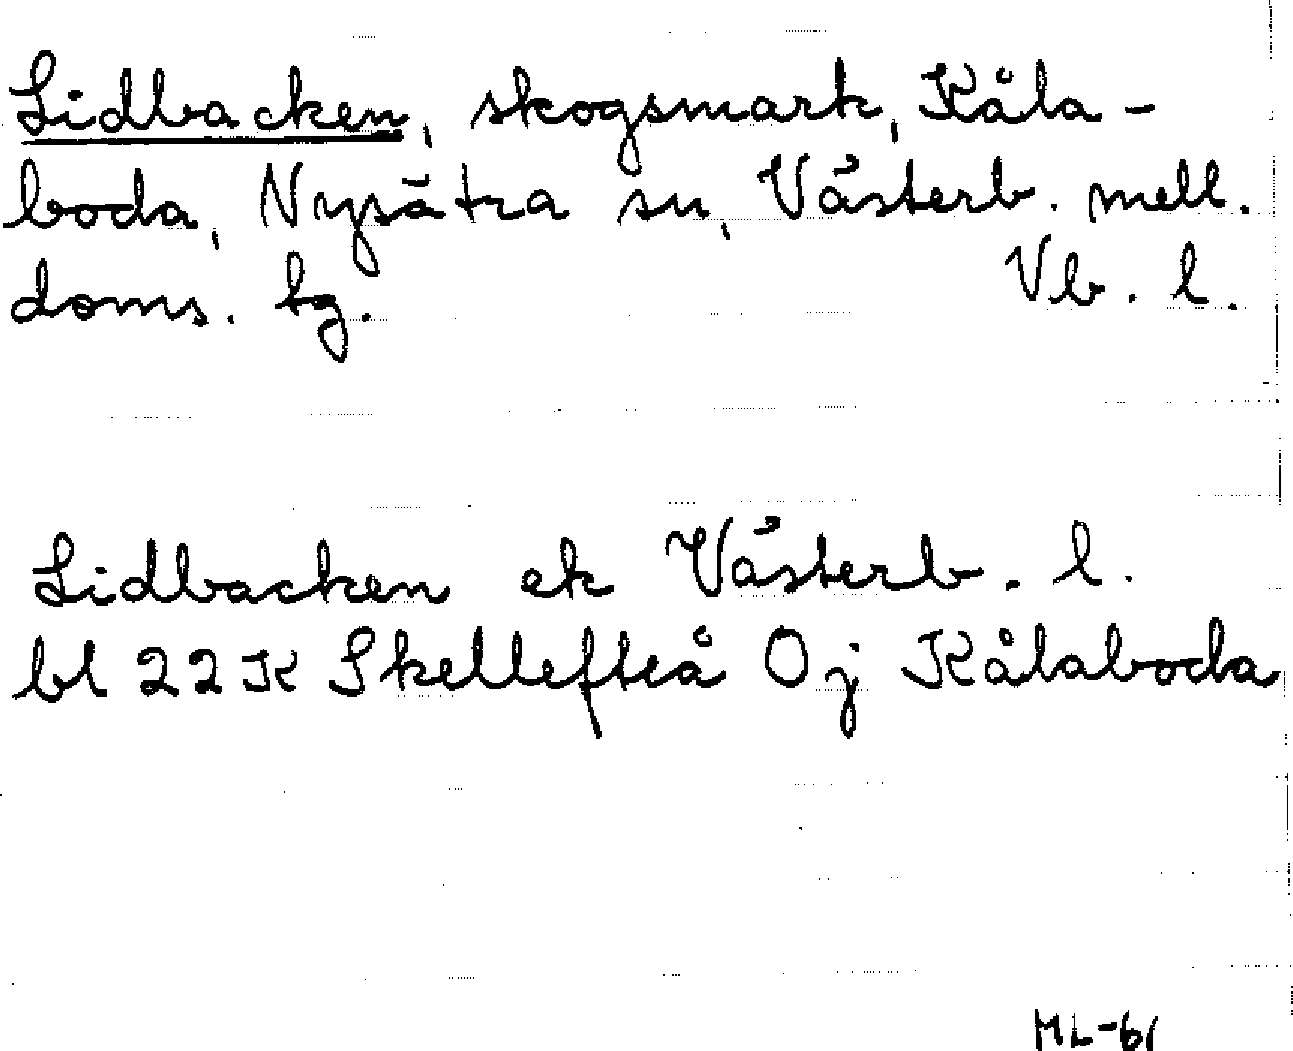 Lidbacken, skogsmark, Kåla-
boda, Nysätra sn, Västerb. mell.
doms. tg. Vb. l.
Lidbacken ek Västerb. l.
bl 22 K Skellefteå Oj Kålaboda
ML-61